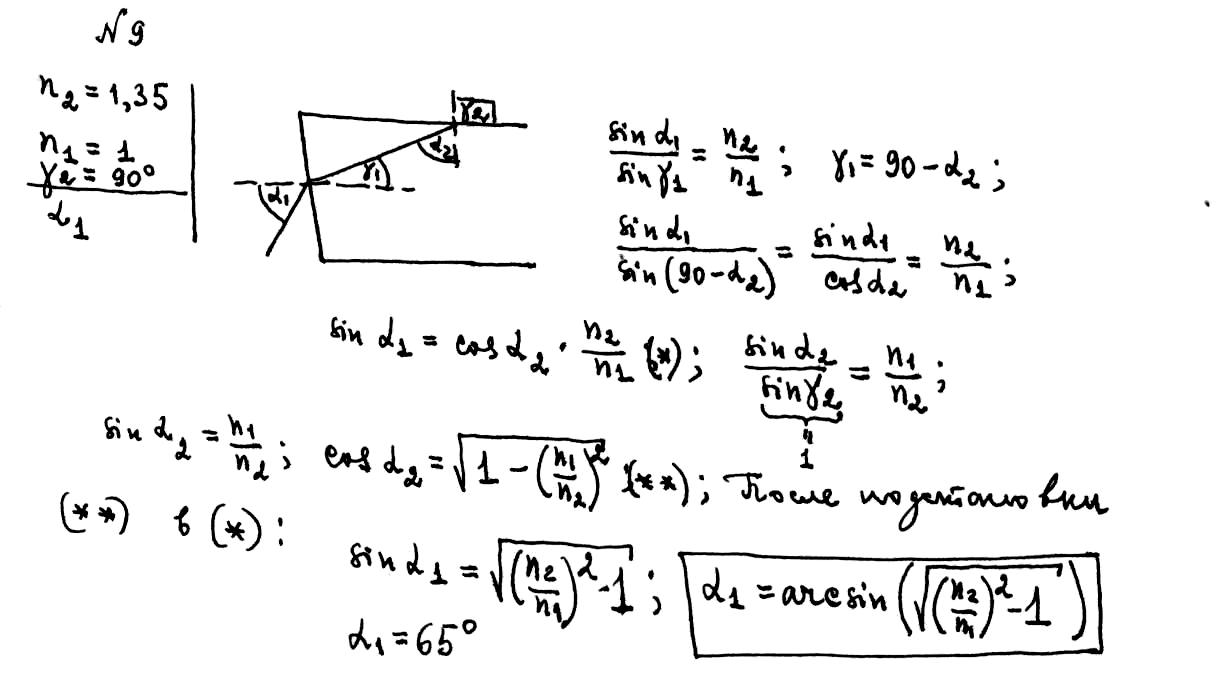 № 9
n₂ = 1,35
n₁ = 1
γ₂ = 90°
α₁
γ₂
α₂
γ₁
α₁
sin α₁ / sin γ₁ = n₂ / n₁ ; γ₁ = 90 - α₂ ;
sin α₁ / sin (90 - α₂) = sin α₁ / cos α₂ = n₂ / n₁ ;
sin α₁ = cos α₂ · n₂ / n₁ (*) ; sin α₂ / sin γ₂ = n₁ / n₂ ;
" 1
sin α₂ = n₁ / n₂ ; cos α₂ = √(1 - (n₁ / n₂)²) (**) ; После подстановки
(**) в (*) :
sin α₁ = √((n₂ / n₁)² - 1) ; α₁ = arcsin (√((n₂ / n₁)² - 1))
α₁ = 65°